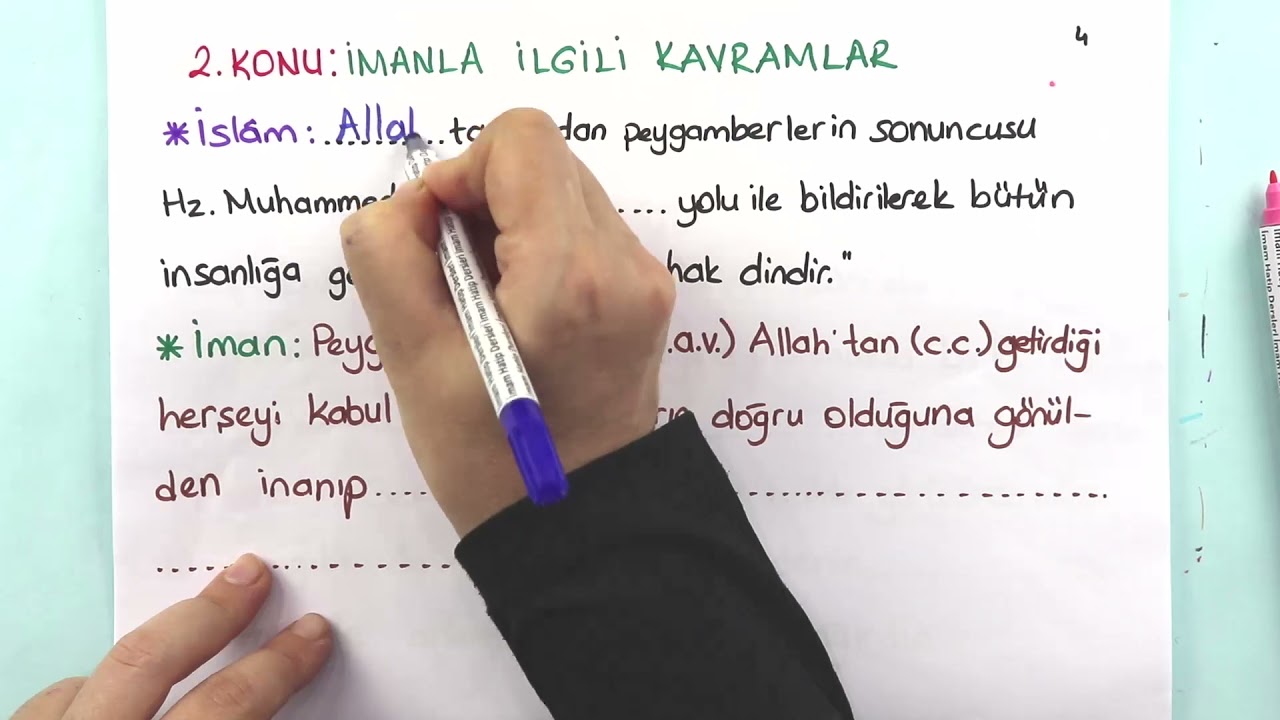 4
2. KONU: İMANLA İLGİLİ KAVRAMLAR
* İslâm: ......... peygamberlerin sonuncusu
Hz. .... yolu ile bildirilerek bütün
insanlığa hak dindir."
* İman: Allah'tan (c.c.) getirdiği
herşeyi kabul doğru olduğuna gönül-
den inanıp ....................
....................